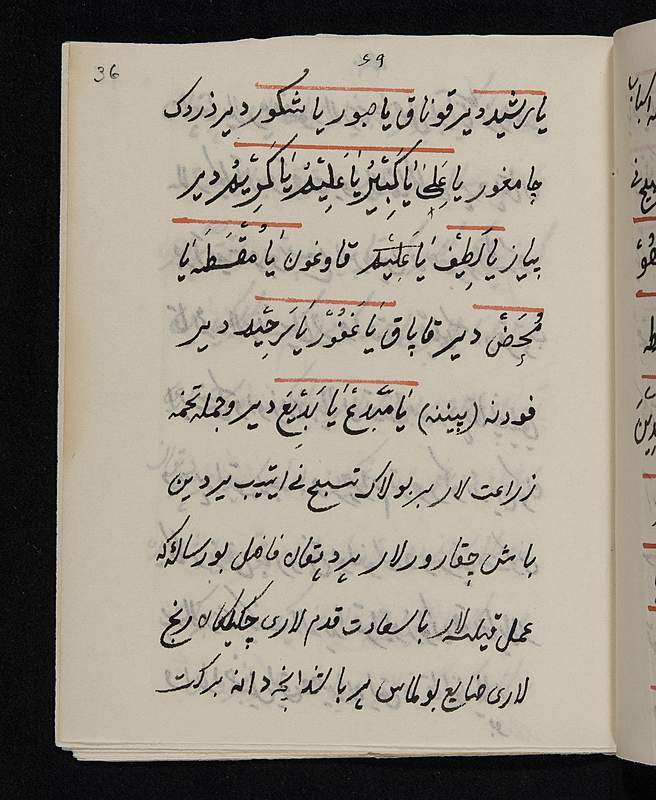 36
۶۹
یا رشید دیر قوناق یا صبور یا شکور دیر زردک
چامغور یا عَلِیُ یَا کَبِیْرُ یَا عَلِیْمُ یَا کَرِیْمُ دیر
پیاز یا لَطِیْف یَا عَلِیْمُ قاوغون یَا مُقْسَطَه یَا
دیر قاپاق یَا غَفُوْر یَا رَحِیْم دیر
فودنه (پیننه) یَا مُبْدِعْ یَا بَدِیْعَ دیر و جمله تخمه
زراعت لار بر بولاک تسبیح نی ایتیب یردین
باش چقارورلار هر دهقان فاضل بو رساله که
عمل قیلسه لار با سعادت قدم لاری چکیلکان رنج
لاری ضایع بولماس هر بالند انچه دانه برکت